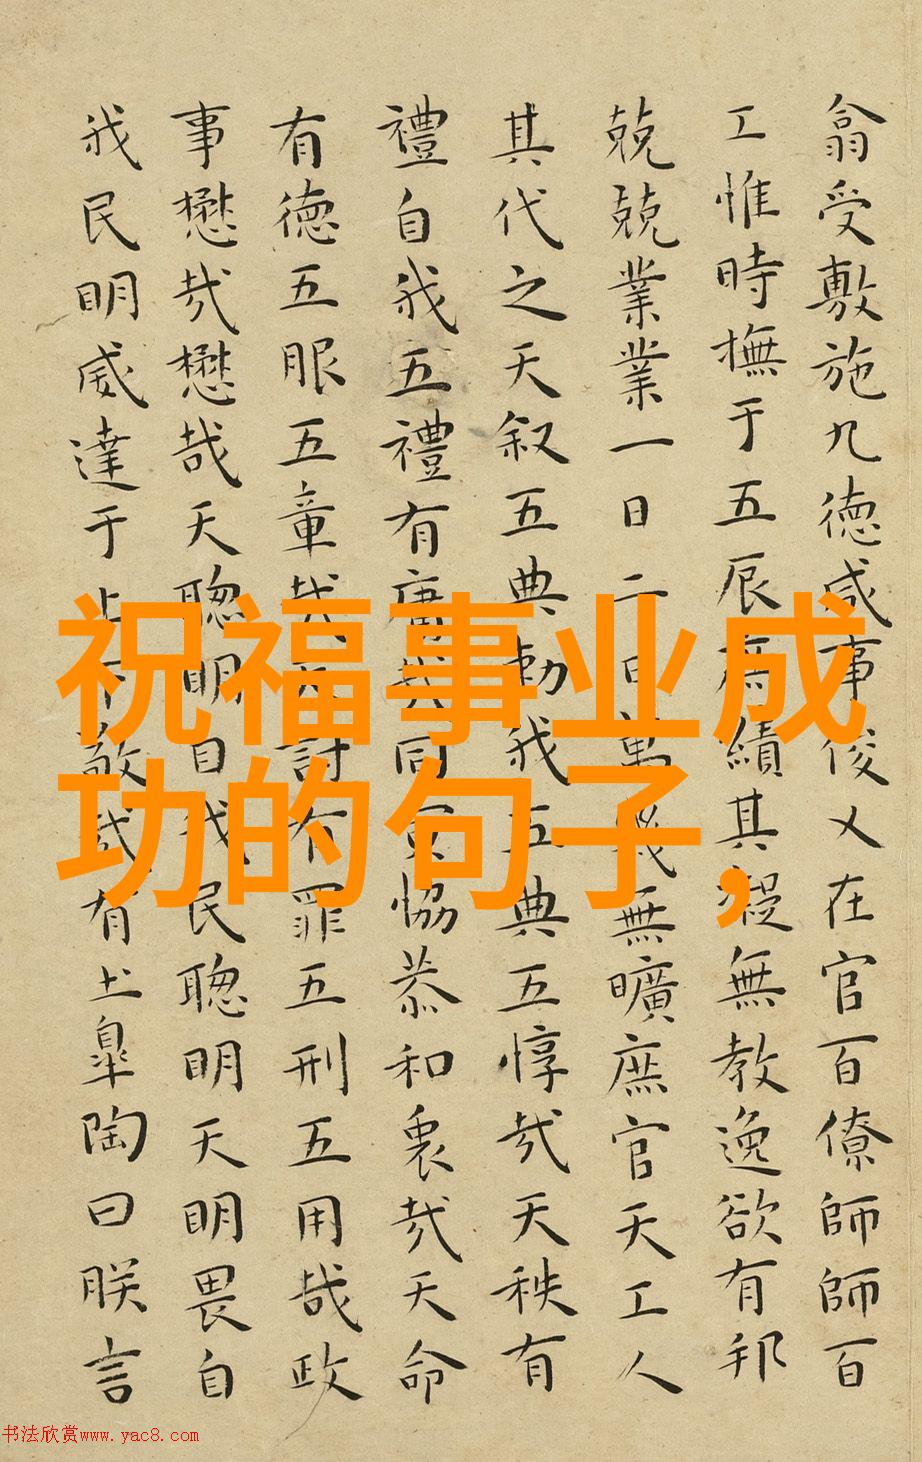 翕受敷施九德咸事俊乂在官百僚師師百
工惟時撫于五辰庶績其凝無教逸欲有邦
兢兢業業一日二日萬幾無曠庶官天工人
其代之天叙五典勑我五典五惇哉天秩有
禮自我五禮有庸哉同寅恊恭和衷哉天命
有德五服五章哉天討有罪五刑五用哉政
事懋哉懋哉天聰明自我民聰明天明畏自
我民明威達于上下敬哉有土臯陶曰朕言
祝福事业成
功的句子，
书法欣赏www.yac8.com